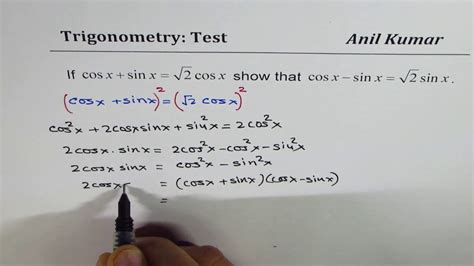 Trigonometry: Test Anil Kumar
If cos x + sin x = √2 cos x show that cos x − sin x = √2 sin x.
(cosx + sinx)² = (√2 cosx)²
cos²x + 2cosx sinx + sin²x = 2cos²x
2cosx · sinx = 2cos²x − cos²x − sin²x
2cosx sinx = cos²x − sin²x
2cosx = (cosx + sinx)(cosx − sinx)
=